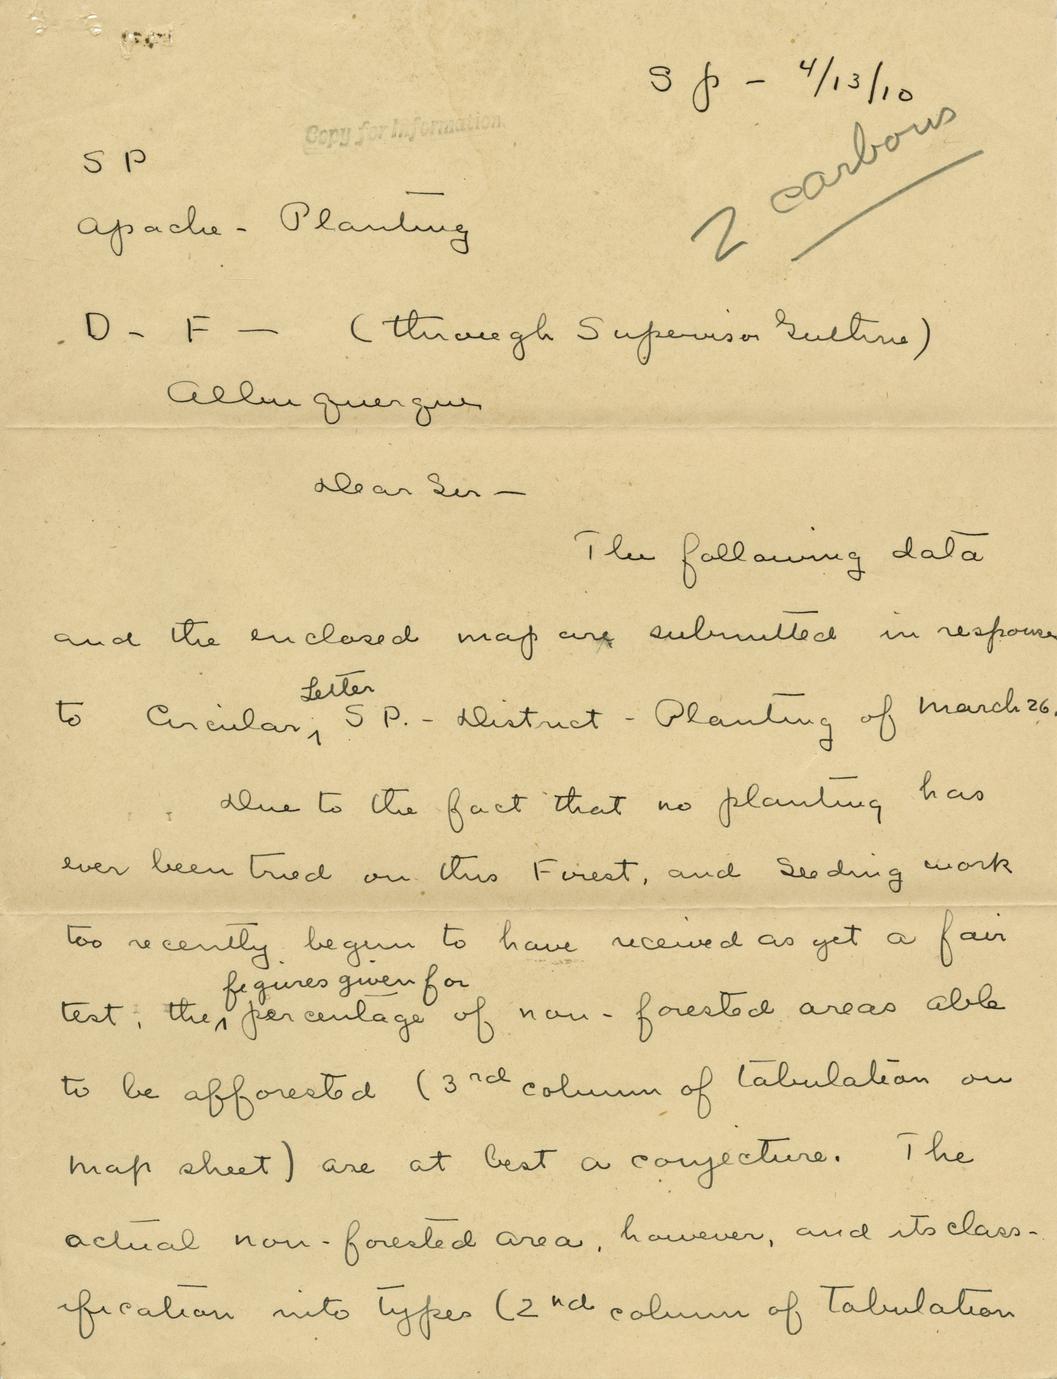 S p - 4/13/10
Copy for Information.
2 carbons
S P
Apache - Planting
D - F - (through Supervisor Guthrie)
Albuquerque
Dear Sir -
The following data
and the enclosed map are submitted in response
to Circular, Letter S P. - District - Planting of March 26.
Due to the fact that no planting has
ever been tried on this Forest, and Seeding work
too recently begun to have received as yet a fair
test, the figures given for percentage of non-forested areas able
to be afforested (3rd column of tabulation on
map sheet) are at best a conjecture. The
actual non-forested area, however, and its class-
ification into types (2nd column of tabulation